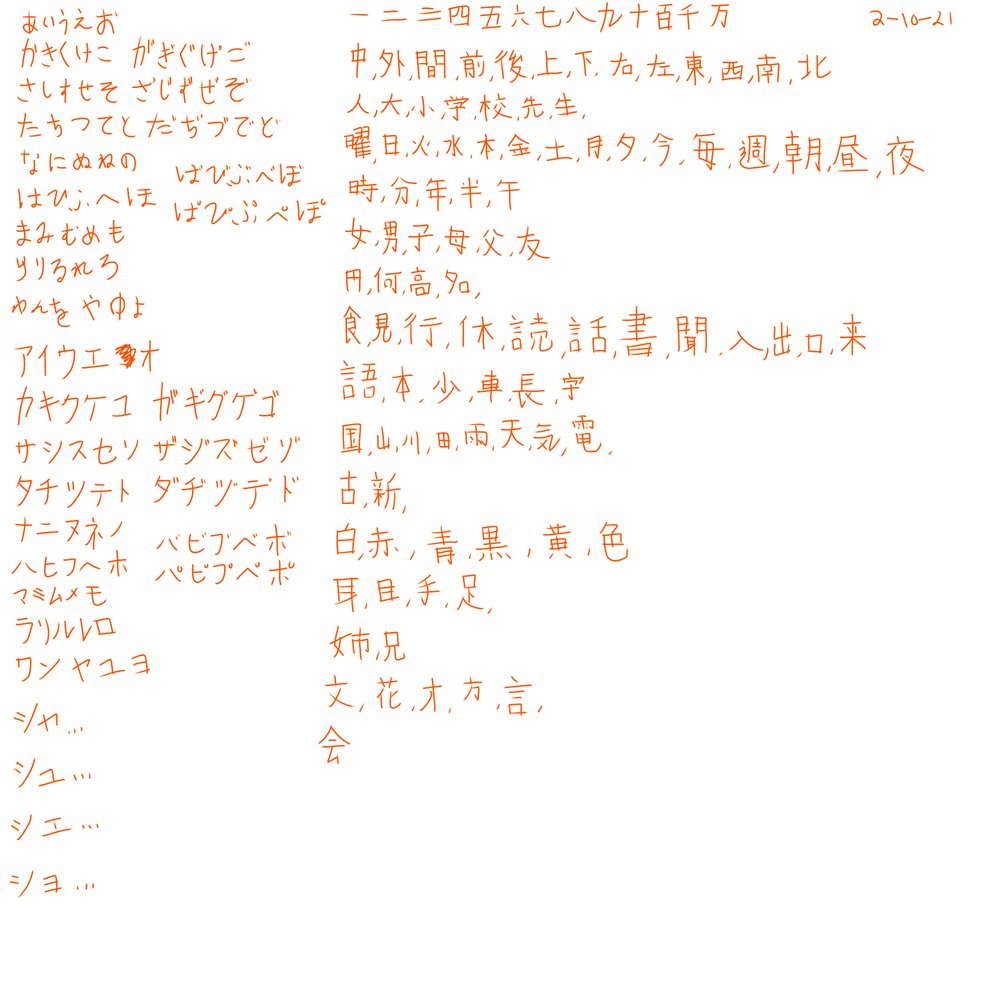 あいうえお
かきくけこ がぎぐげご
さしすせそ ざじずぜぞ
たちつてと だぢづでど
なにぬねの
はひふへほ ばびぶべぼ
ぱぴぷぺぽ
まみむめも
らりるれろ
わんを やゆよ
アイウエ オ
カキクケコ ガギグゲゴ
サシスセソ ザジズゼゾ
タチツテト ダヂヅデド
ナニヌネノ
ハヒフヘホ バビブベボ
パピプペポ
マミムメモ
ラリルレロ
ワン ヤユヨ
シャ...
シュ...
シェ...
ショ...
一二三四五六七八九十百千万
2-10-21
中,外,間,前,後,上,下,右,左,東,西,南,北
人,大,小,学,校,先,生,
曜,日,火,水,木,金,土,月,夕,今,毎,週,朝,昼,夜
時,分,年,半,午
女,男,子,母,父,友
円,何,高,名,
食,見,行,休,読,話,書,聞,入,出,口,来
語,本,少,車,長,字
国,山,川,田,雨,天,気,電,
古,新,
白,赤,青,黒,黄,色
耳,目,手,足,
姉,兄
文,花,才,方,言,
会